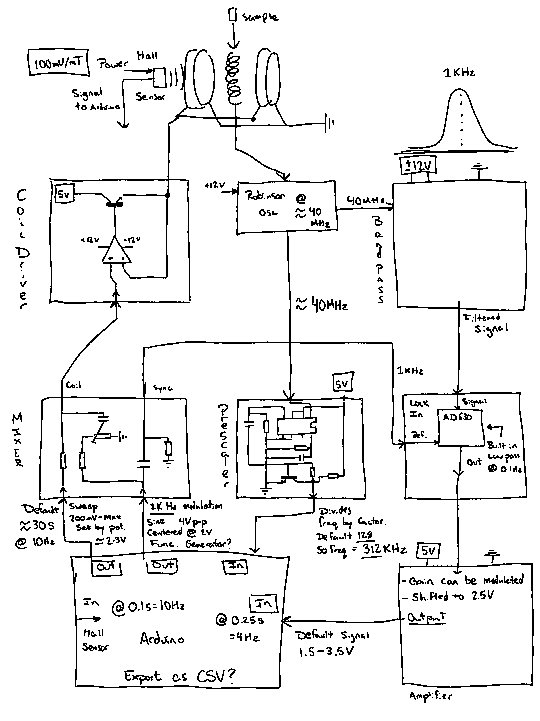 Sample
100mV/mT
Power
Hall
Sensor
Signal
to Arduino
1KHz
Coil Driver
5V
+12V
-12V
+12V
Robinson
Osc
@
≈ 40
MHz
40MHz
Bandpass
±12V
≈ 40MHz
Filtered
Signal
1KHz
Coil
Sync
Mixer
Prescaler
5V
Lock
In
Signal
AD630
Ref.
Out
Built in
Low pass
@ 0.1Hz
Default
≈30s
@ 10Hz
Sweep
200mV-Max
Set by pot.
≈ 2.3V
1K Hz modulation
Sine 4Vpp
Centered @ 2V
Func. Generator?
Divides
freq by factor.
Default 128
So freq = 312KHz
Out
Out
In
In
@ 0.1s=10Hz
Hall
Sensor
Arduino
In
@ 0.25s
=4Hz
Export as CSV?
Default Signal
1.5-3.5V
5V
- Gain can be modulated
- Shifted to 2.5V
Output
Amplifier